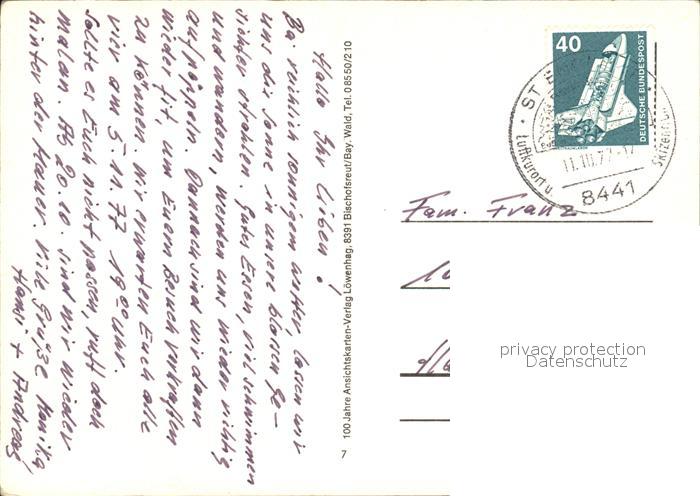 Hallo Ihr Lieben!
Bei reichlich sonnigem Wetter, lassen wir
uns die Sonne in unsere blassen Ge-
sichter strahlen. Gutes Essen, viel schwimmen
und wandern, werden uns wieder richtig
aufpäppeln. Danach sind wir dann
wieder fit um Euren Besuch verkraften
zu können. Wir erwarten Euch alle
vier am 5.11.77 19⁰⁰ Uhr.
Sollte es Euch nicht passen, ruft doch
mal an. Ab 20.10. sind wir wieder
hinter der Mauer. Viele Grüße Monika,
Hansi + Andreas
7
100 Jahre Ansichtskarten-Verlag Löwenhag, 8391 Bischofsreut/Bay. Wald, Tel. 08550/210
40
DEUTSCHE BUNDESPOST
ST
Luftkurort u.
Skizentrum
8441
Fam. Franz
privacy protection
Datenschutz